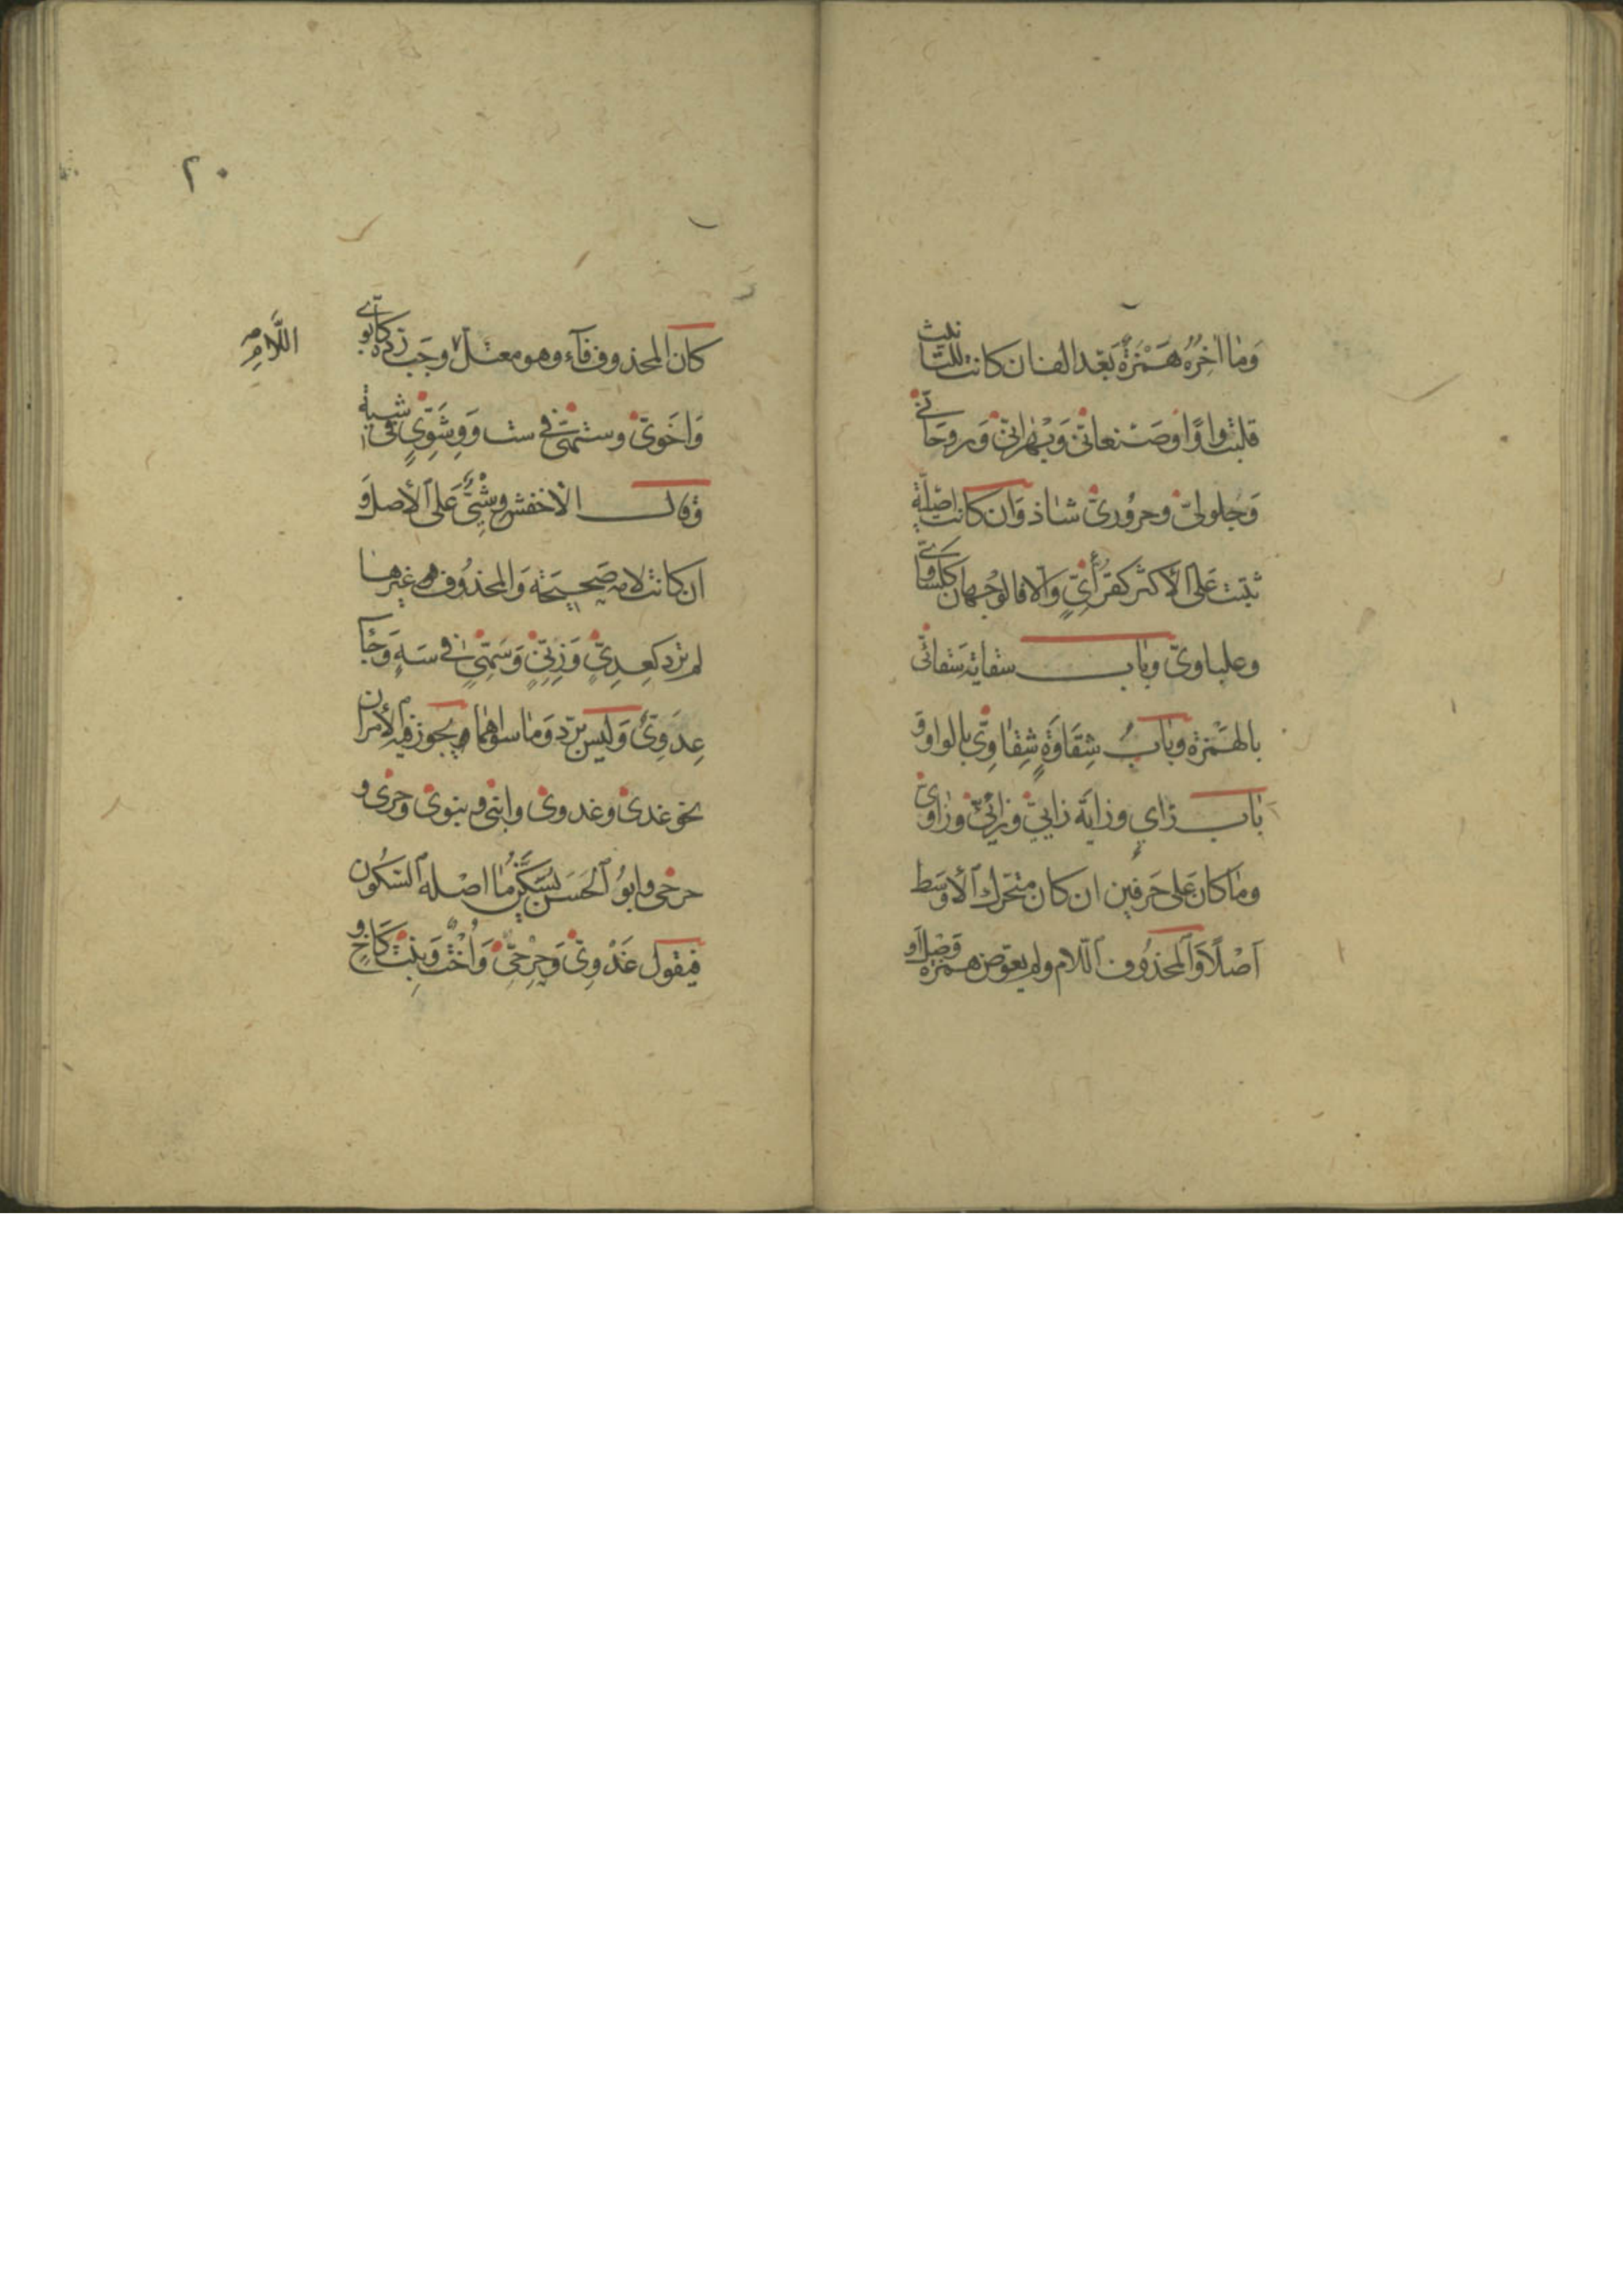 وَمَا اٰخِرُهُ هَمْزَةٌ بَعْدَ الف ان كانت للتانيث
قلبت واوًا وصَنعانيّ وَبَهْرانيّ وَروحَانيّ
وَجلوليّ وحروريّ شاذ وَان كانت اصليّة
ثبتت عَلى الاكثر كقرّائيٍّ وَالا فالوجهان ككسَاويّ
وعلباويّ وباب سقاية سَقائيّ
بالهَمْزة وبابُ شِقَاوَةٍ شِقاوِيّ بالواو و
باب راي وراية راييّ ورائيّ وراويّ
ومَا كانَ عَلى حَرفين ان كان متحرك الأوسَط
اَصْلاً وَالمحذوف اللام ولم يعوّض همزة وَصْل او
٢٠
كان المحذوف فآء وهو معتلّ اللَّامِ وجَب ردّه كأبويّ
وَاخَويّ وستهيّ في ست وَوِشَوِيٍّ في شية
وقال الاخفش وِشْيِيٌّ عَلى الأصل وَ
ان كانت لامه صَحيحَة وَالمحذوف غيرها
لم يُردّ كعِدِيٍّ وَزِنِيٍّ وَسَهِيٍّ في سَهٍ وَجَآءَ
عِدَوِيٌّ وَليس بردّ وَما سواهما يجوز فيه الأمران
نحو غدىّ وغدوىّ وابنىّ وبنوىّ وحرىّ و
حرحىّ وابوُ الحَسَن يُسَكّن مَا اصْله السّكون
فيقول غَدْوِيّ وَحِرْحِيّ وَأُخْت وَبِنت كَاخٍ و